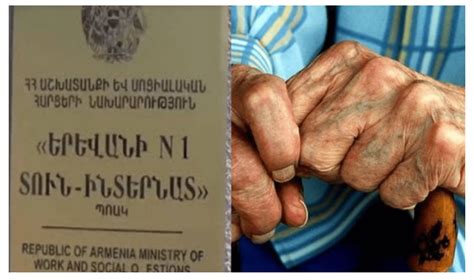 ՀՀ ԱՇԽԱՏԱՆՔԻ ԵՎ ՍՈՑԻԱԼԱԿԱՆ
ՀԱՐՑԵՐԻ ՆԱԽԱՐԱՐՈՒԹՅՈՒՆ
«ԵՐԵՎԱՆԻ N 1
ՏՈՒՆ-ԻՆՏԵՐՆԱՏ»
ՊՈԱԿ
REPUBLIC OF ARMENIA MINISTRY OF
WORK AND SOCIAL